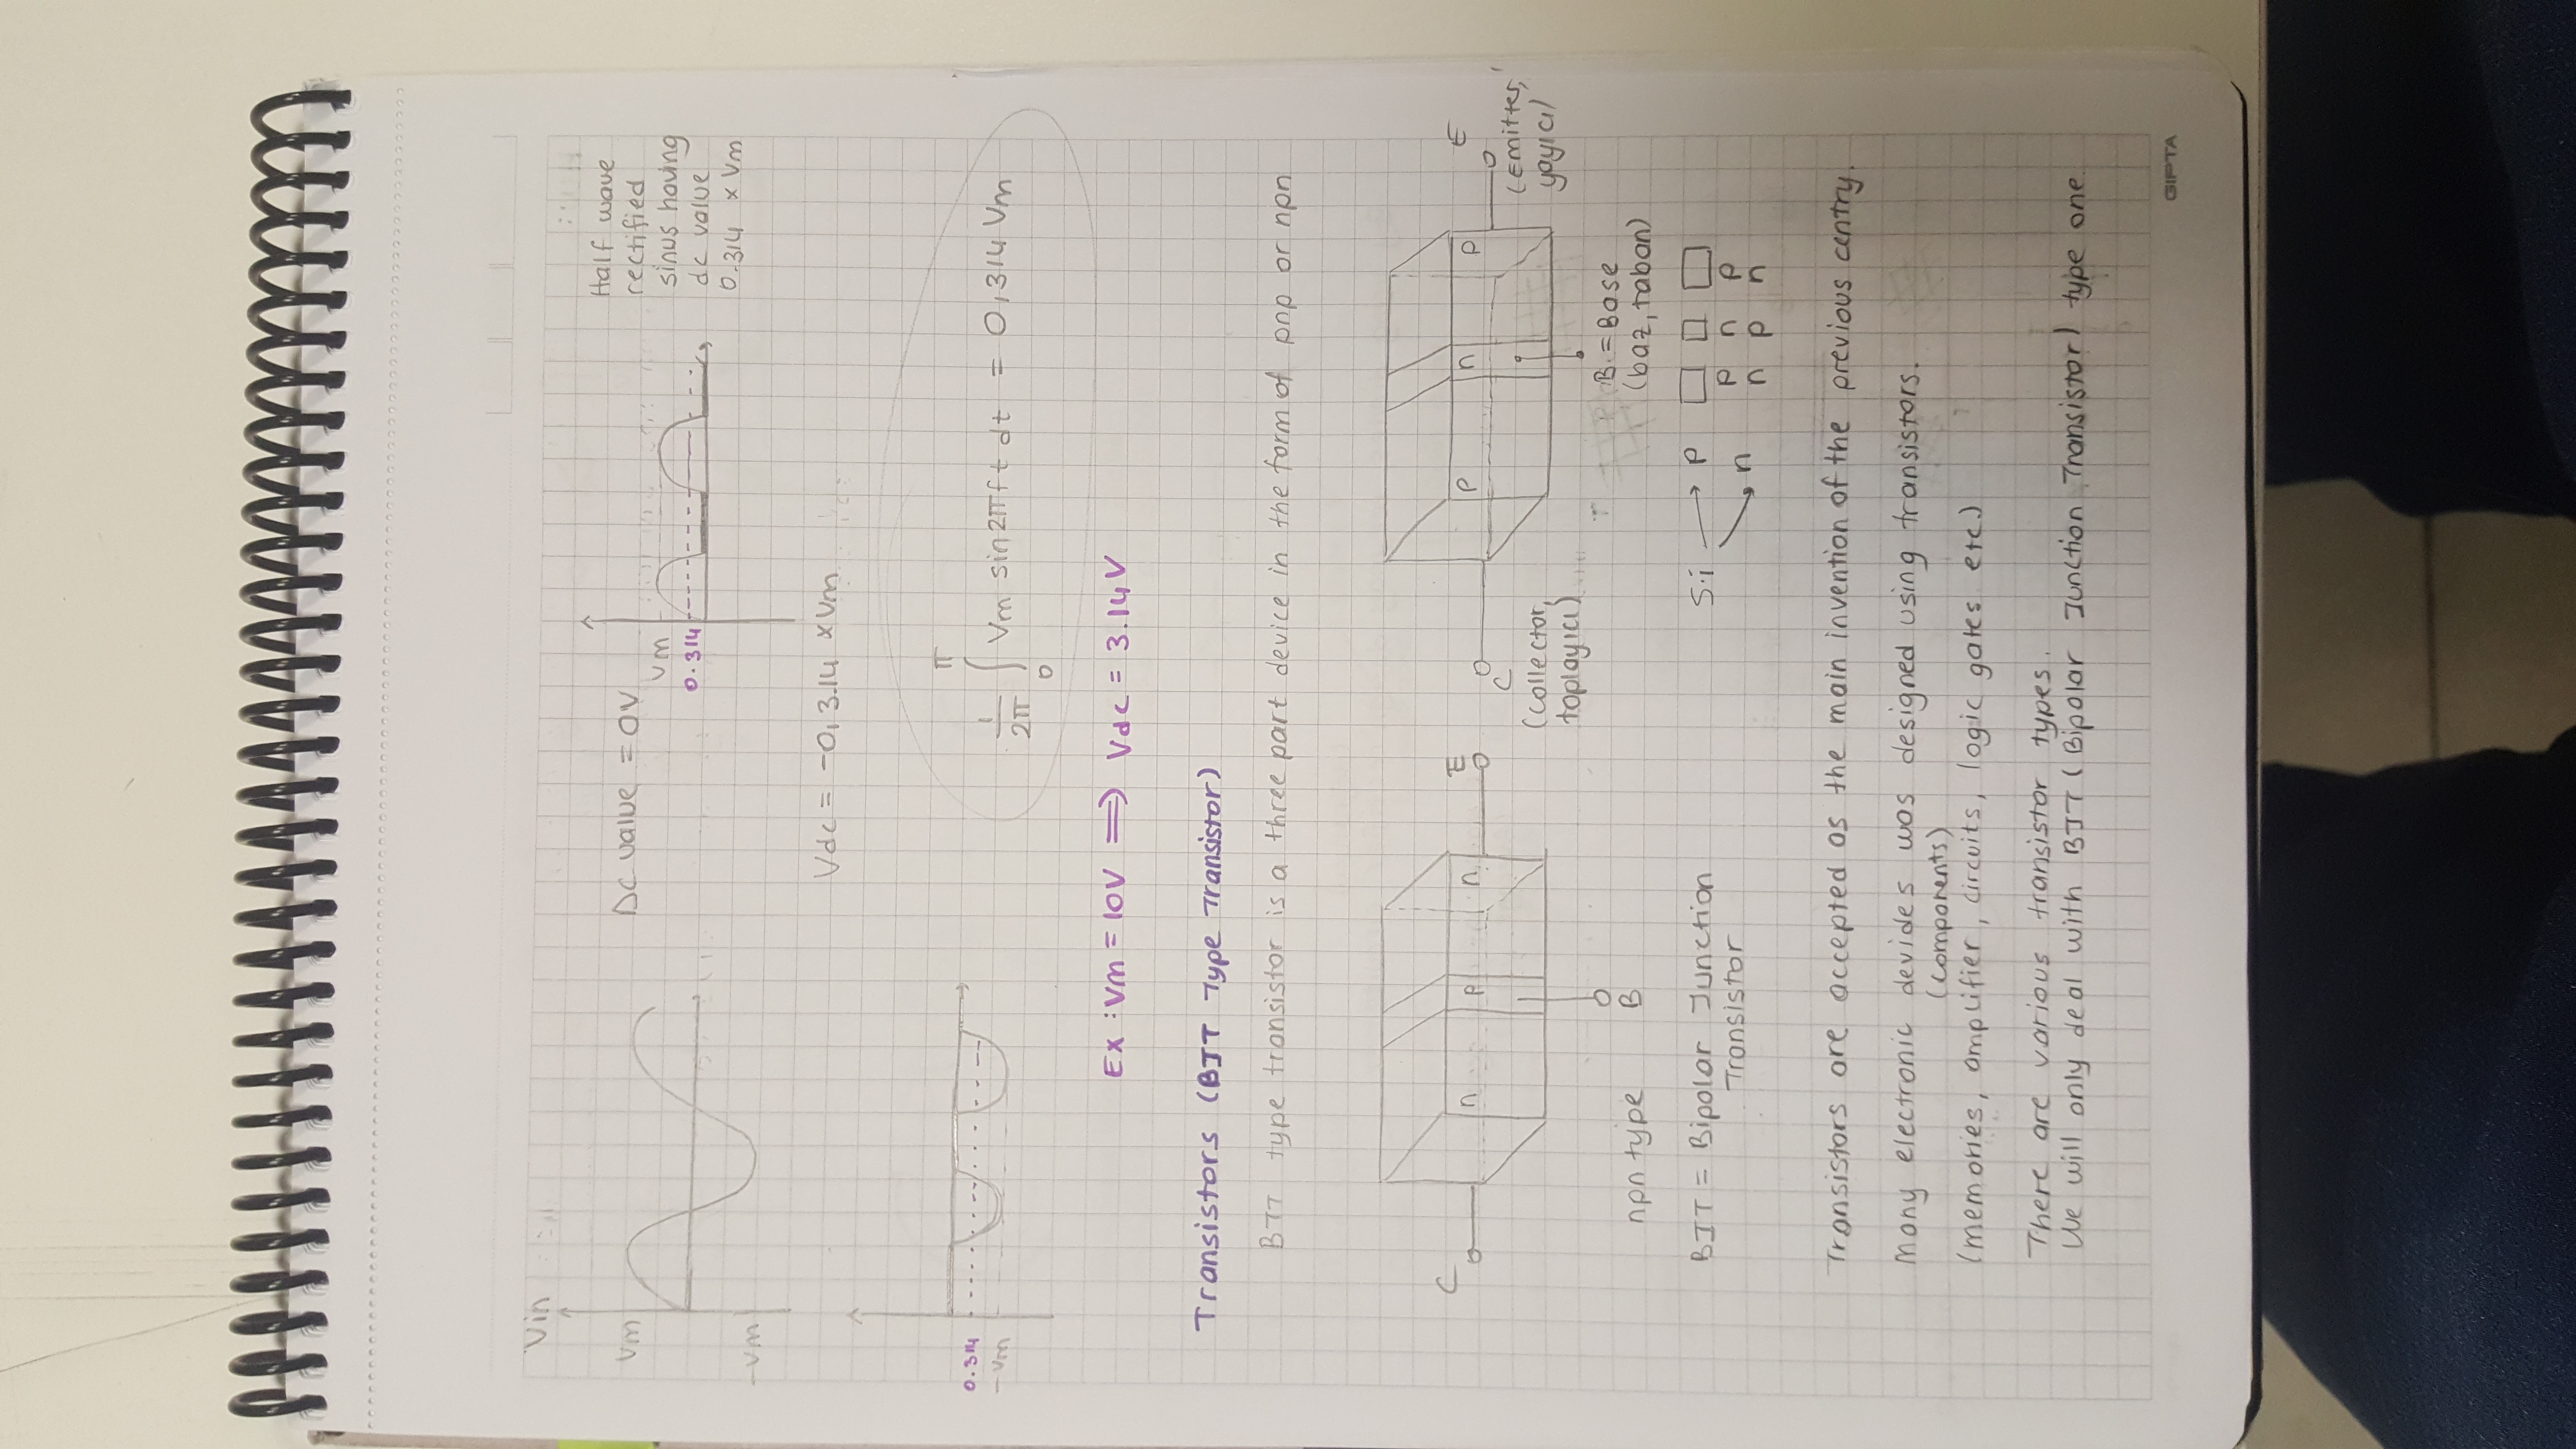 Vin
Vm
-Vm
Dc value = 0V
Vm
0.314
Half wave
rectified
sinus having
dc value
0.314 x Vm
Vdc = -0,314 x Vm
0.314
-Vm
1/2π ∫ π 0 Vm sin2πft dt = 0,314 Vm
Ex : Vm = 10V ⟹ Vdc = 3.14V
Transistors (BJT Type Transistor)
BJT type transistor is a three part device in the form of pnp or npn
C n p n E
B
npn type
C p n p E
(collector,
toplayıcı)
(Emitter,
yayıcı)
B = Base
(baz, taban)
BJT = Bipolar Junction
Transistor
Si → p
→ n
p n p
n p n
Transistors are accepted as the main invention of the previous centry.
Many electronic devides was designed using transistors.
(components)
(memories, amplifier, circuits, logic gates etc)
There are various transistor types.
We will only deal with BJT (Bipolar Junction Transistor) type one.
GIPTA